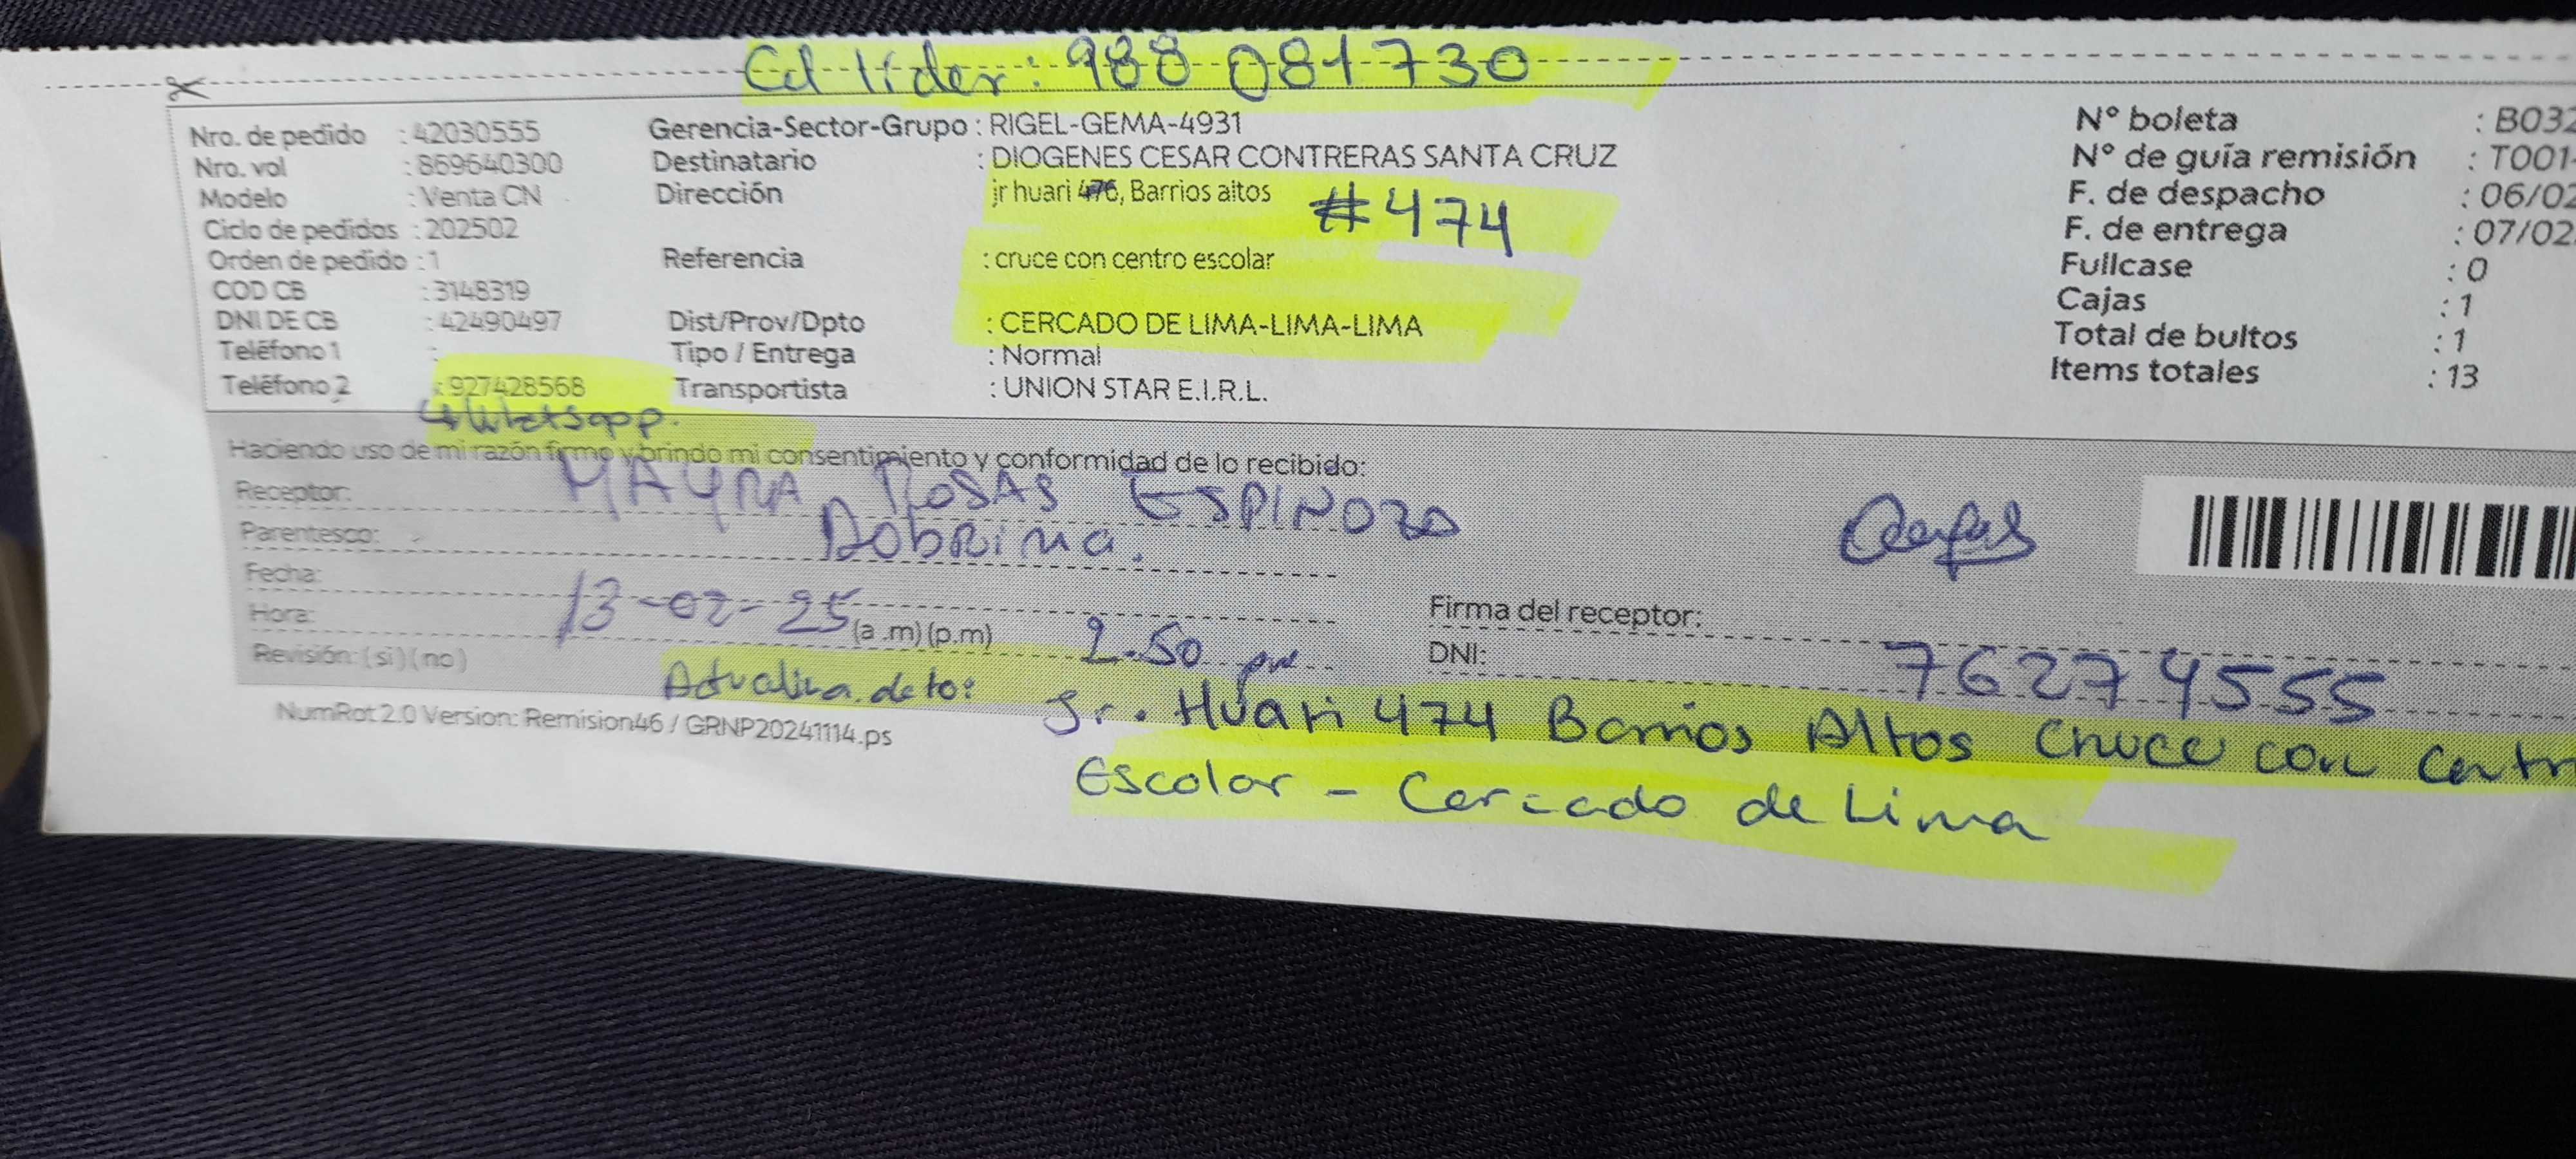 Cel líder: 988 081730
Nro. de pedido : 42030555
Nro. vol : 869640300
Modelo : Venta CN
Ciclo de pedidos : 202502
Orden de pedido : 1
COD CB : 3148319
DNI DE CB : 42490497
Teléfono 1 :
Teléfono 2 : 927428568
↳ Whatsapp.
Gerencia-Sector-Grupo : RIGEL-GEMA-4931
Destinatario : DIOGENES CESAR CONTRERAS SANTA CRUZ
Dirección : jr huari 476, Barrios altos #474
Referencia : cruce con centro escolar
Dist/Prov/Dpto : CERCADO DE LIMA-LIMA-LIMA
Tipo / Entrega : Normal
Transportista : UNION STAR E.I.R.L.
N° boleta : B032
N° de guía remisión : T001-
F. de despacho : 06/02
F. de entrega : 07/02
Fullcase : 0
Cajas : 1
Total de bultos : 1
Items totales : 13
Haciendo uso de mi razón firmo y brindo mi consentimiento y conformidad de lo recibido:
Receptor: MAYRA ROSAS ESPINOZA
Parentesco: SObRiNa.
Fecha: 13-02-25
Hora: (a .m) (p.m) 2.50 pm
Revisión: ( si ) ( no )
Firma del receptor:
DNI: 76274555
Actualiza dato: Jr. Huari 474 Barrios Altos Cruce con Centr
Escolar - Cercado de Lima
NumRot 2.0 Version: Remision46 / GRNP20241114.ps